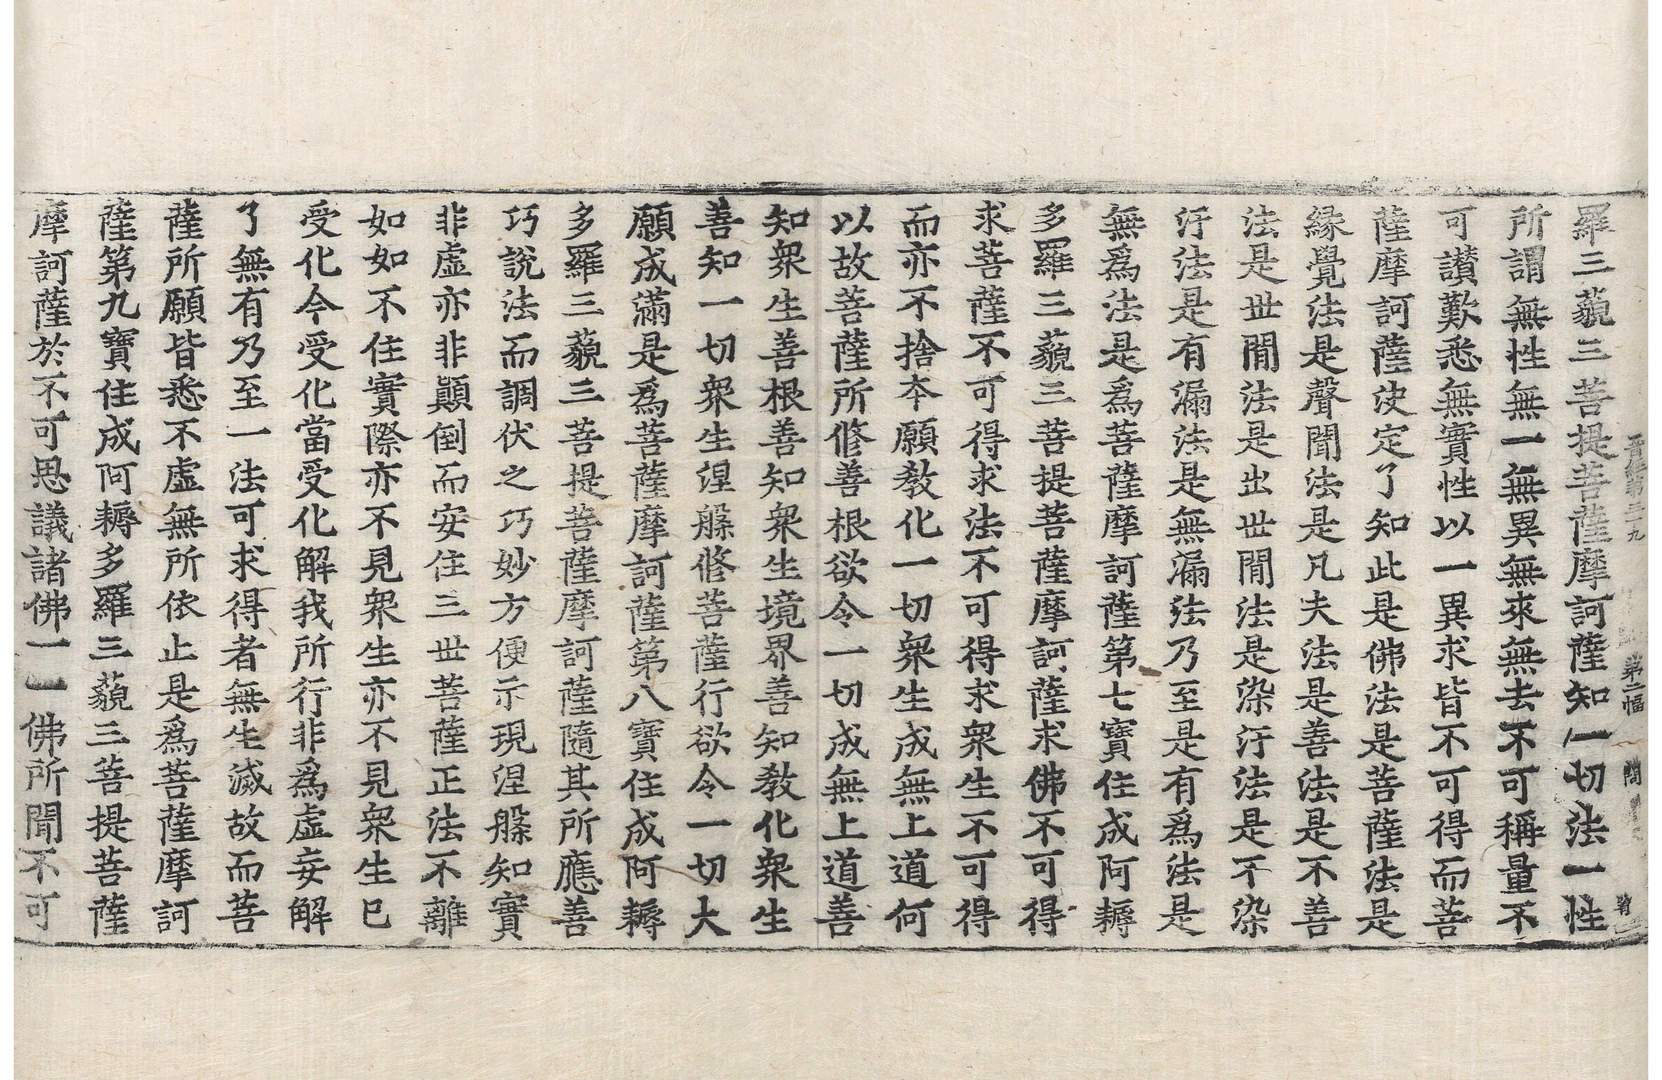 晋經第三十九 第二幅
羅三藐三菩提菩薩摩訶薩知一切法一性
所謂無性無一無異無來無去不可稱量不
可讃歎悉無實性以一異求皆不可得而菩
薩摩訶薩決定了知此是佛法是菩薩法是
緣覺法是聲聞法是凡夫法是善法是不善
法是世間法是出世間法是染汙法是不染
汙法是有漏法是無漏法乃至是有爲法是
無爲法是爲菩薩摩訶薩第七寶住成阿耨
多羅三藐三菩提菩薩摩訶薩求佛不可得
求菩薩不可得求法不可得求衆生不可得
而亦不捨本願教化一切衆生成無上道何
以故菩薩所修善根欲令一切成無上道善
知衆生善根善知衆生境界善知教化衆生
善知一切衆生涅槃修菩薩行欲令一切大
願成滿是爲菩薩摩訶薩第八寶住成阿耨
多羅三藐三菩提菩薩摩訶薩隨其所應善
巧說法而調伏之巧妙方便示現涅槃知實
非虛亦非顚倒而安住三世菩薩正法不離
如如不住實際亦不見衆生亦不見衆生已
受化今受化當受化解我所行非爲虛妄解
了無有乃至一法可求得者無生滅故而菩
薩所願皆悉不虛無所依止是爲菩薩摩訶
薩第九寶住成阿耨多羅三藐三菩提菩薩
摩訶薩於不可思議諸佛一一佛所聞不可